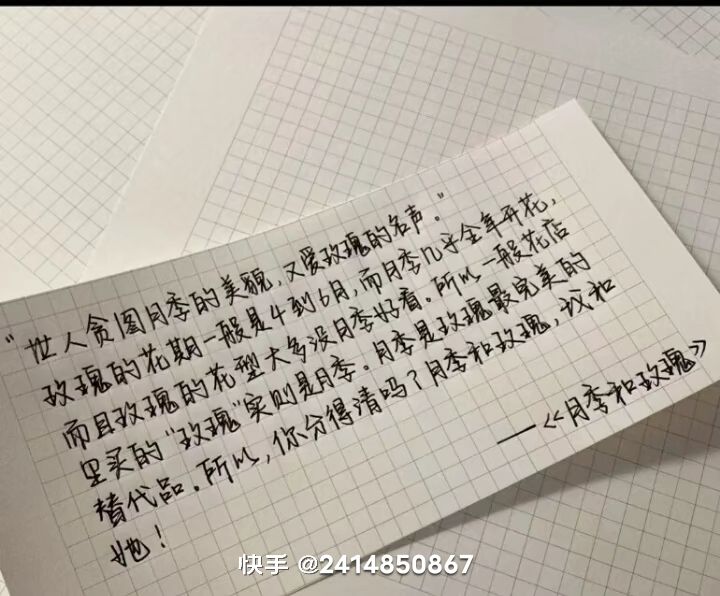 "世人贪图月季的美貌,又爱玫瑰的名声。"
玫瑰的花期一般是4到6月,而月季几乎全年开花,
而且玫瑰的花型大多没月季好看。所以一般花店
里买的"玫瑰"实则是月季。月季是玫瑰最完美的
替代品。所以,你分得清吗?月季和玫瑰,我和
她!
——《月季和玫瑰》
快手 @2414850867